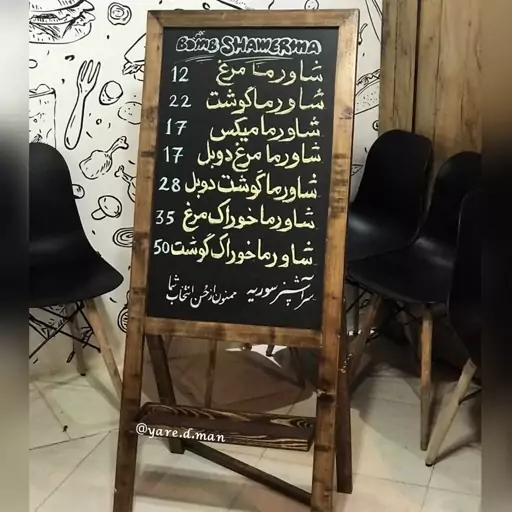 BOMB SHAWERMA
شاورما مرغ 12
شاورما گوشت 22
شاورما میکس 17
شاورما مرغ دوبل 17
شاورما گوشت دوبل 28
شاورما خوراک مرغ 35
شاورما خوراک گوشت 50
سرآشپز سوریه
ممنون از حسن انتخاب شما
@yare.d.man